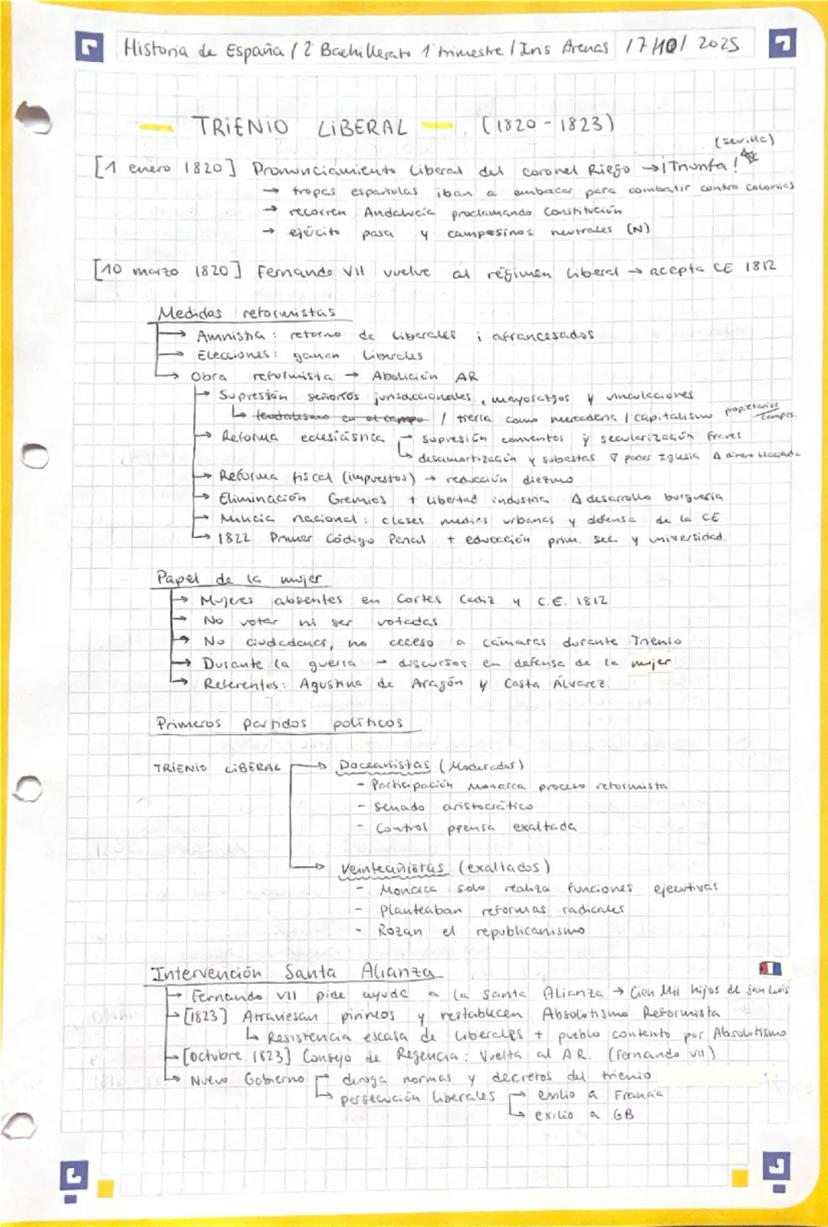 Historia de España / 2º Bachillerato 1º trimestre / Iris Arenas 17/10/2025
TRIENIO LIBERAL (1820-1823)
(Sevilla)
[1 enero 1820] Pronunciamiento liberal del coronel Riego → ¡Triunfa!
→ tropas españolas iban a embarcar para combatir contra colonias
→ recorren Andalucía proclamando Constitución
→ ejército pasa y campesinos neutrales (N)
[10 marzo 1820] Fernando VII vuelve al régimen liberal → acepta CE 1812
Medidas reformistas
→ Amnistía: retorno de liberales i afrancesados
→ Elecciones: ganan liberales
→ Obra reformista → Abolición AR
→ Supresión señoríos jurisdiccionales, mayorazgos y vinculaciones
↳ feudalismo en el campo / tierra como mercadería / capitalismo propietarios campes.
→ Reforma eclesiástica → supresión conventos y secularización frailes
↳ desamortización y subastas ∇ poder Iglesia Δ dinero
→ Reforma fiscal (impuestos) → reducción diezmo
→ Eliminación Gremios + libertad industria Δ desarrollo burguesía
→ Milicia nacional: clases medias urbanas y defensa de la CE
→ 1822 Primer Código Penal + educación prim. sec. y universidad.
Papel de la mujer
→ Mujeres absentes en Cortes Cadiz y C.E. 1812
→ No votar ni ser votadas
→ No ciudadanas, no acceso a cámaras durante Trienio
→ Durante la guerra → discursos en defensa de la mujer
→ Referentes: Agustina de Aragón y Casta Álvarez.
Primeros partidos políticos
TRIENIO LIBERAL → Doceañistas (Moderados)
- Participación Monarca proceso reformista
- Senado aristocrático
- Control prensa exaltada
→ Veinteañistas (exaltados)
- Monarca solo realiza funciones ejecutivas
- Planteaban reformas radicales
- Rozan el republicanismo
Intervención Santa Alianza
→ Fernando VII pide ayuda a la Santa Alianza → Cien Mil hijos de San Luis
→ [1823] Atraviesan pirineos y restablecen Absolutismo Reformista
↳ Resistencia escasa de liberales + pueblo contento por Absolutismo
→ [octubre 1823] Consejo de Regencia: Vuelta al AR. (Fernando VII)
→ Nuevo Gobierno → deroga normas y decretos del trienio
↳ persecución liberales → exilio a Francia
↳ exilio a GB